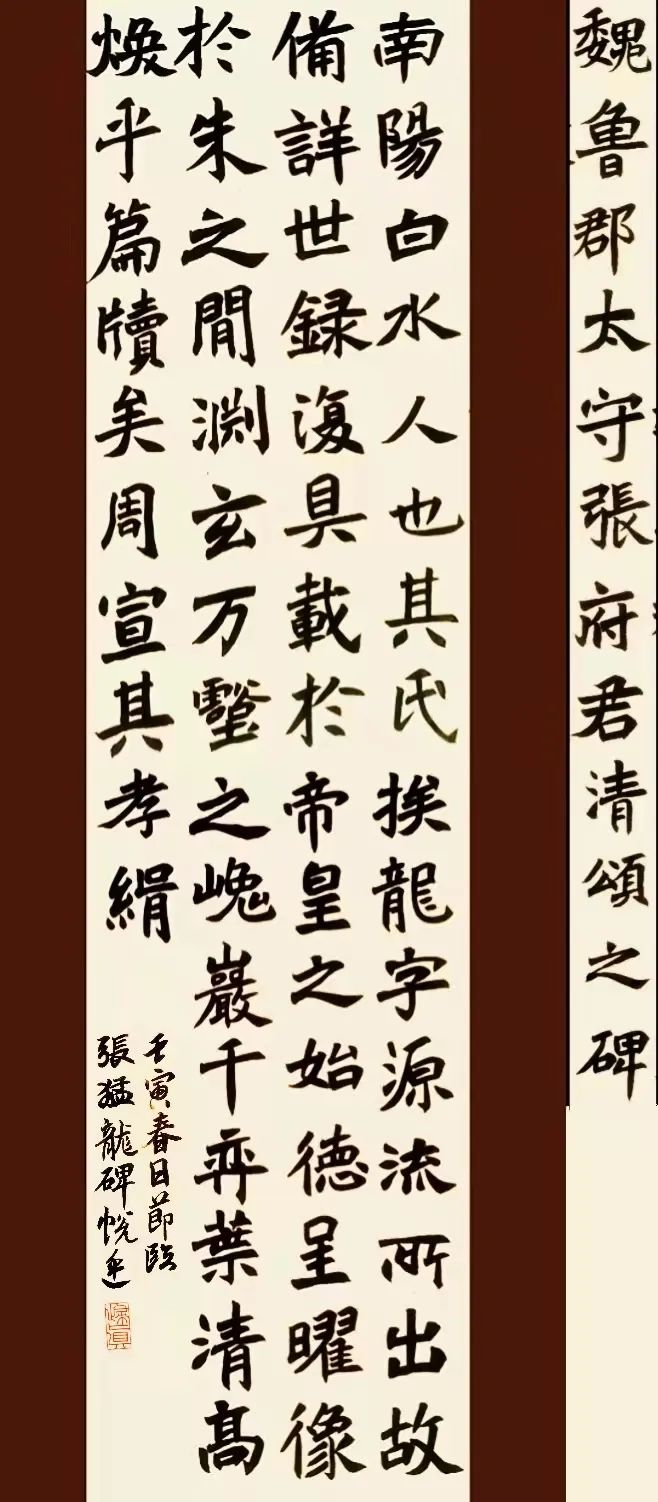 魏魯郡太守張府君清頌之碑
南陽白水人也其氏挨龍字源流所出故
備詳世録復具載於帝皇之始德呈曜像
於朱之閒淵玄万壑之嵬巖千弈葉清高
煥乎篇牘矣周宣其孝緝
壬寅春日節臨
張猛龍碑悅